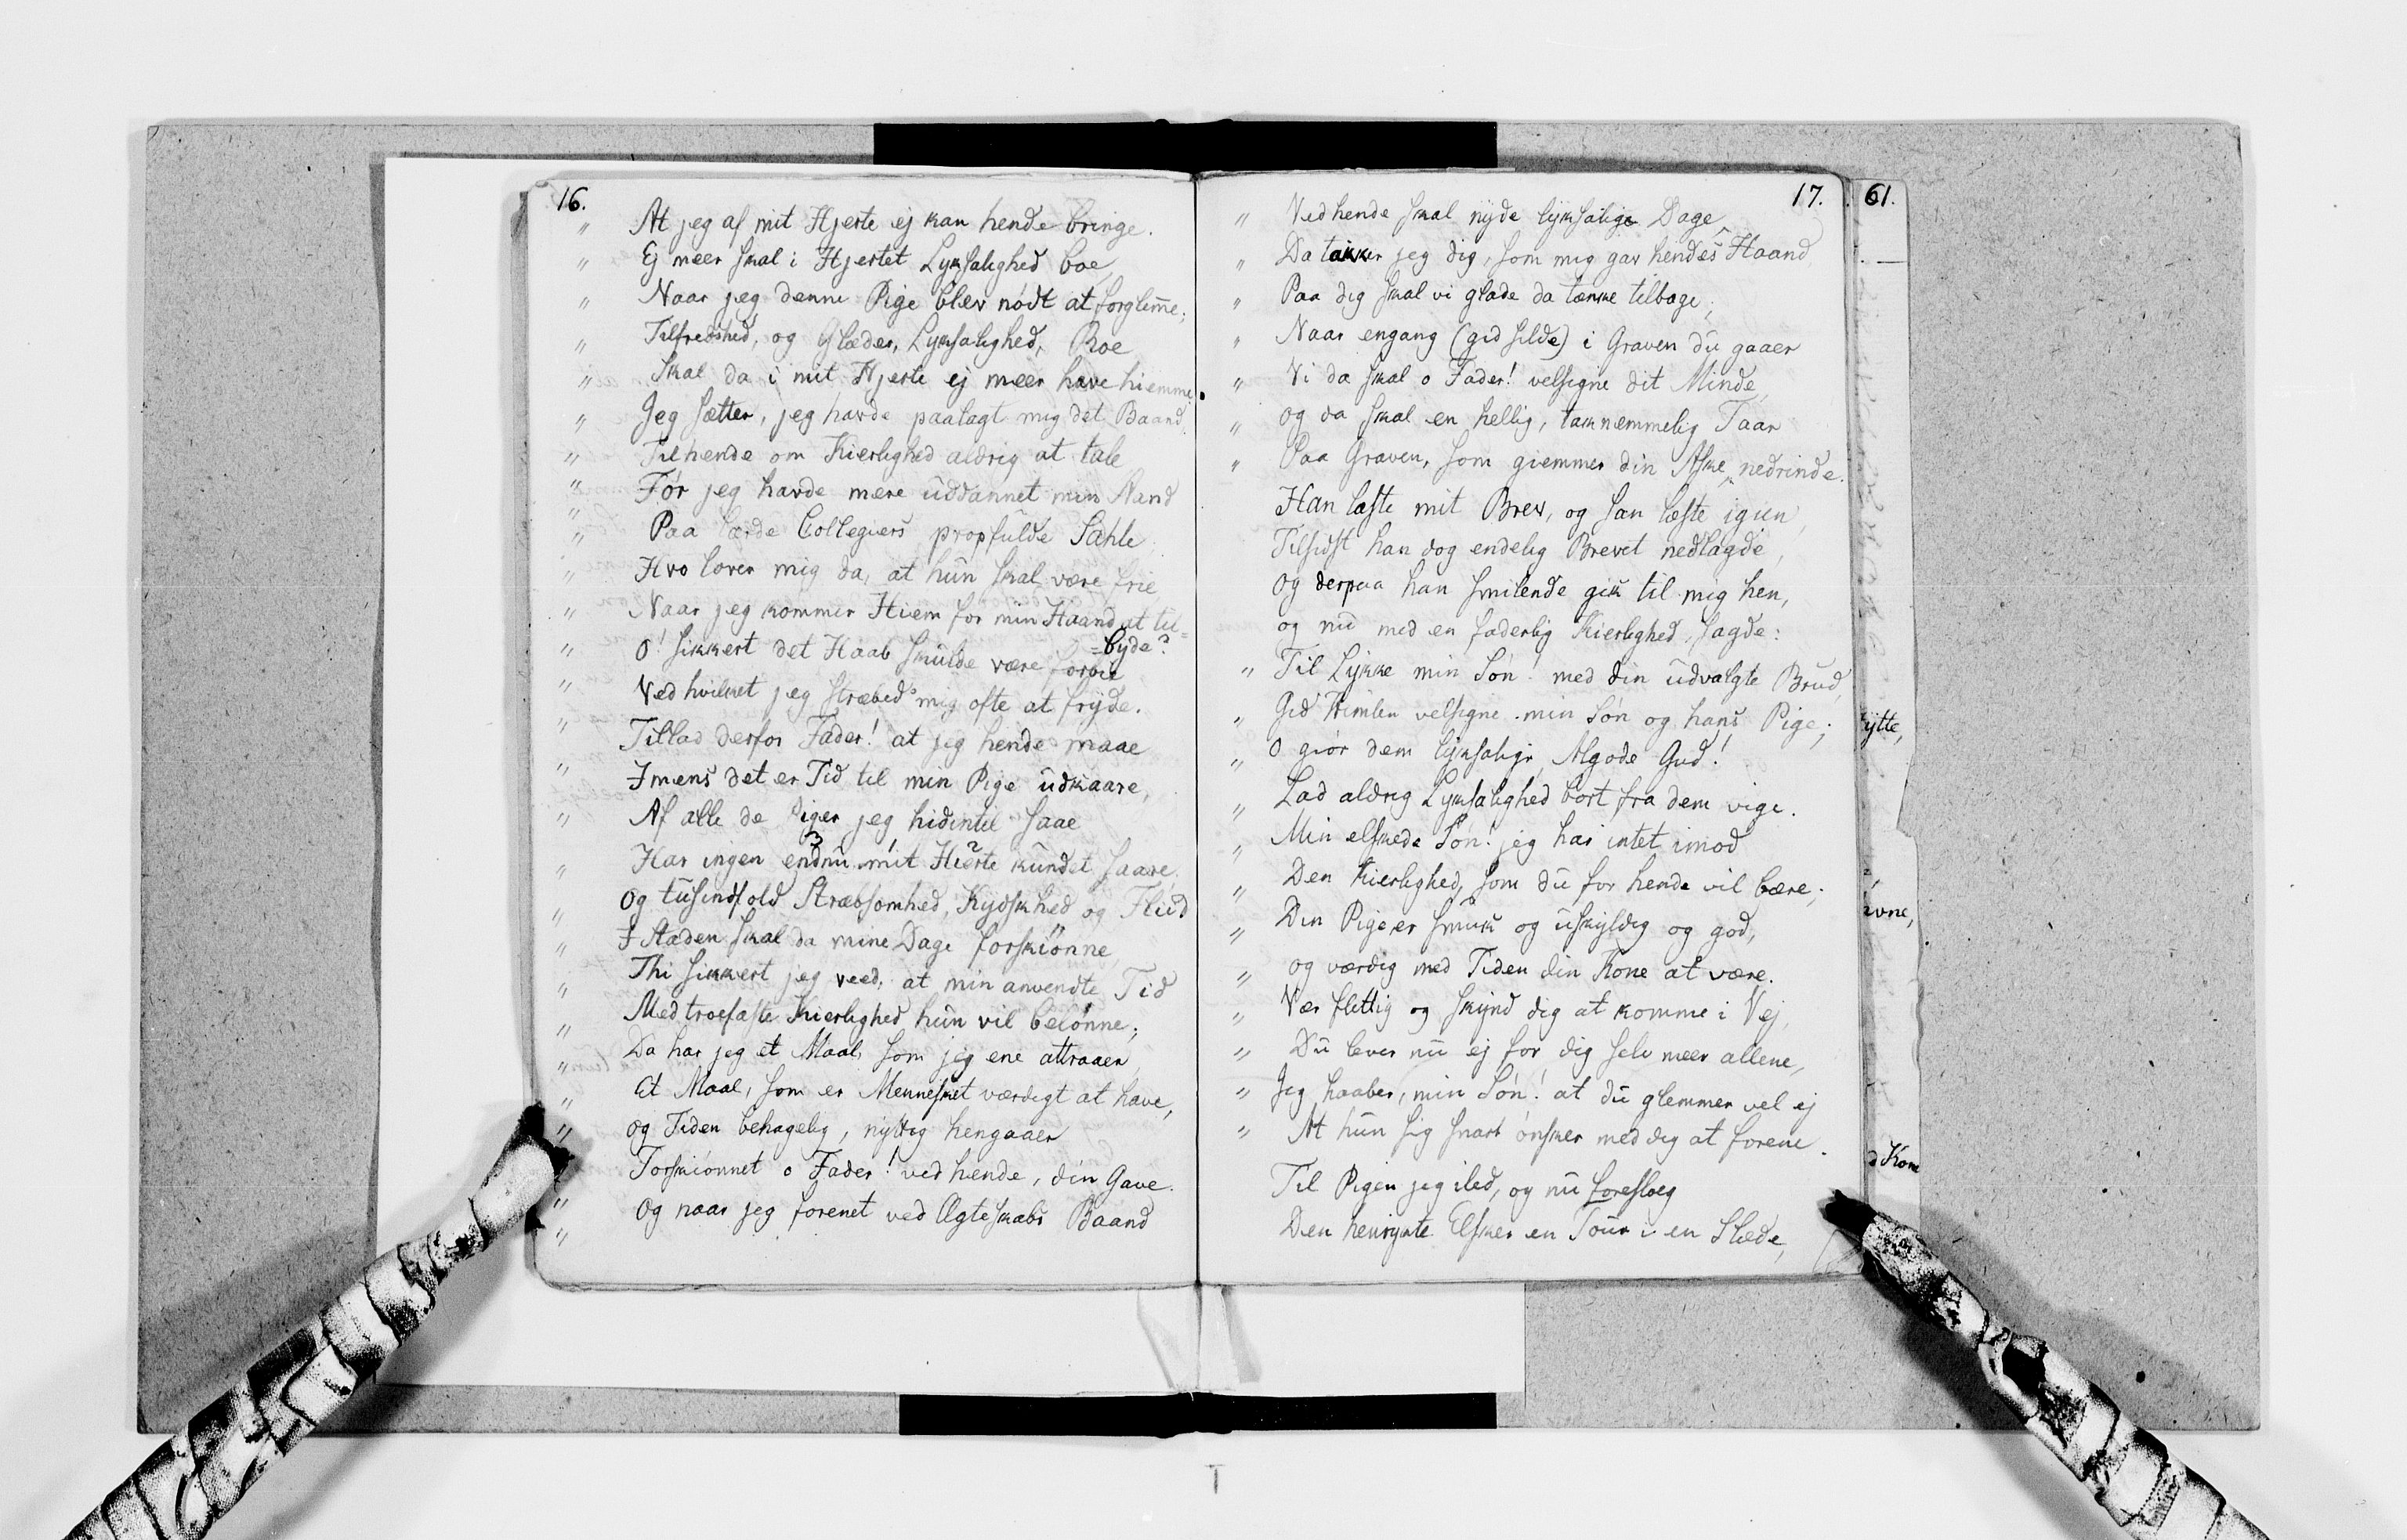 16.
" At jeg af mit Hjerte ej kan hende bringe.
" Ej meer skal i Hjertet Lyksalighed boe,
" Naar jeg denne Pige blev nödt at forglem̄e;
" Tilfredshed, og Glæder, Lyksalighed, Roe
" Skal da i mit Hjerte ej meer have hiemme.
" Jeg sætter, jeg havde paalagt mig det Baand,
" Til hende om Kierlighed aldrig at tale
"För jeg havde mere uddannet min Aand
" Paa lærde Collegiers propfulde Sahle,
" Hvo lover mig da, at hun skal være frie,
" Naar jeg kommer Hiem for min Haand at til=
=byde?
" O! sikkert det Haab skulde være forbie
" Ved hvilket jeg stræbed' mig ofte at fryde.
" Tillad derfor Fader! at jeg hende maae
" Imens det er Tid til min Pige udkaare,
" Af alle de Piger jeg hidintil saae
" Har ingen endnu mit Hierte kundet saare.
" Og tusindfold Stræbsomhed, Kydskhed og Fliid
" I Staden skal da mine Dage forskiönne
" Thi sikkert jeg veed, at min anvendte Tid
" Med troefaste Kierlighed hun vil belönne;
" Da har jeg et Maal, som jeg ene attraaer,
" Et Maal, som er Mennesket værdigt at have,
" Og Tiden behagelig, nyttig hengaaer
" Forskiönnet o Fader! ved hende, din Gave.
" Og naar jeg forenet ved Ægteskabs Baand
17.
" Ved hende skal nyde lyksalige Dage,
" Da takker jeg dig, som mig gav hendes Haand,
" Paa dig skal vi glade da tænke tilbage;
" Naar engang (gid silde) i Graven du gaaer
" Vi da skal o Fader! velsigne dit Minde,
" Og da skal en hellig, taknemmelig Taar
" Paa Graven, som giemmer din Aske, nedrinde.
Han læste mit Brev, og han læste igien,
Tilsidst han dog endelig Brevet nedlagde,
Og derpaa han smilende gik til mig hen,
og nu med en faderlig Kierlighed, sagde:
" Til Lykke min Sön! med din udvalgte Brud,
" Gid Himlen velsigne min Sön og hans Pige;
" O giör dem lyksalige, Algode Gud!
" Lad aldrig Lyksalighed bort fra dem vige.
" Min elskede Sön! jeg har intet imod
" Den Kierlighed, som du for hende vil bære;
" Din Pige er smuk og uskyldig og god,
" Og værdig med Tiden din Kone at være.
" Vær flittig og skynd dig at komme i Vej,
" Du lever nu ej for dig selv meer allene,
" Jeg haaber, min Sön! at du glemmer vel ej
" At hun sig snart önsker med dig at forene.
Til Pigen jeg iled, og nu foresloeg
Den henrykte Elsker en Tour i en Slæde,
61.
ytte,
evne,
d Kone